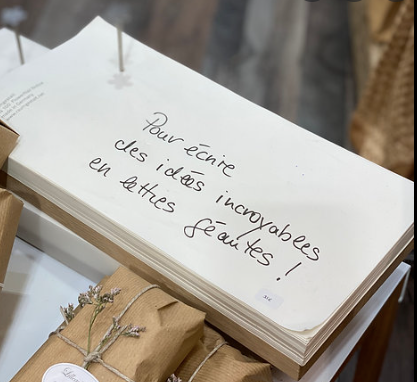 Pour écrire
des idées incroyables
en lettres géantes !